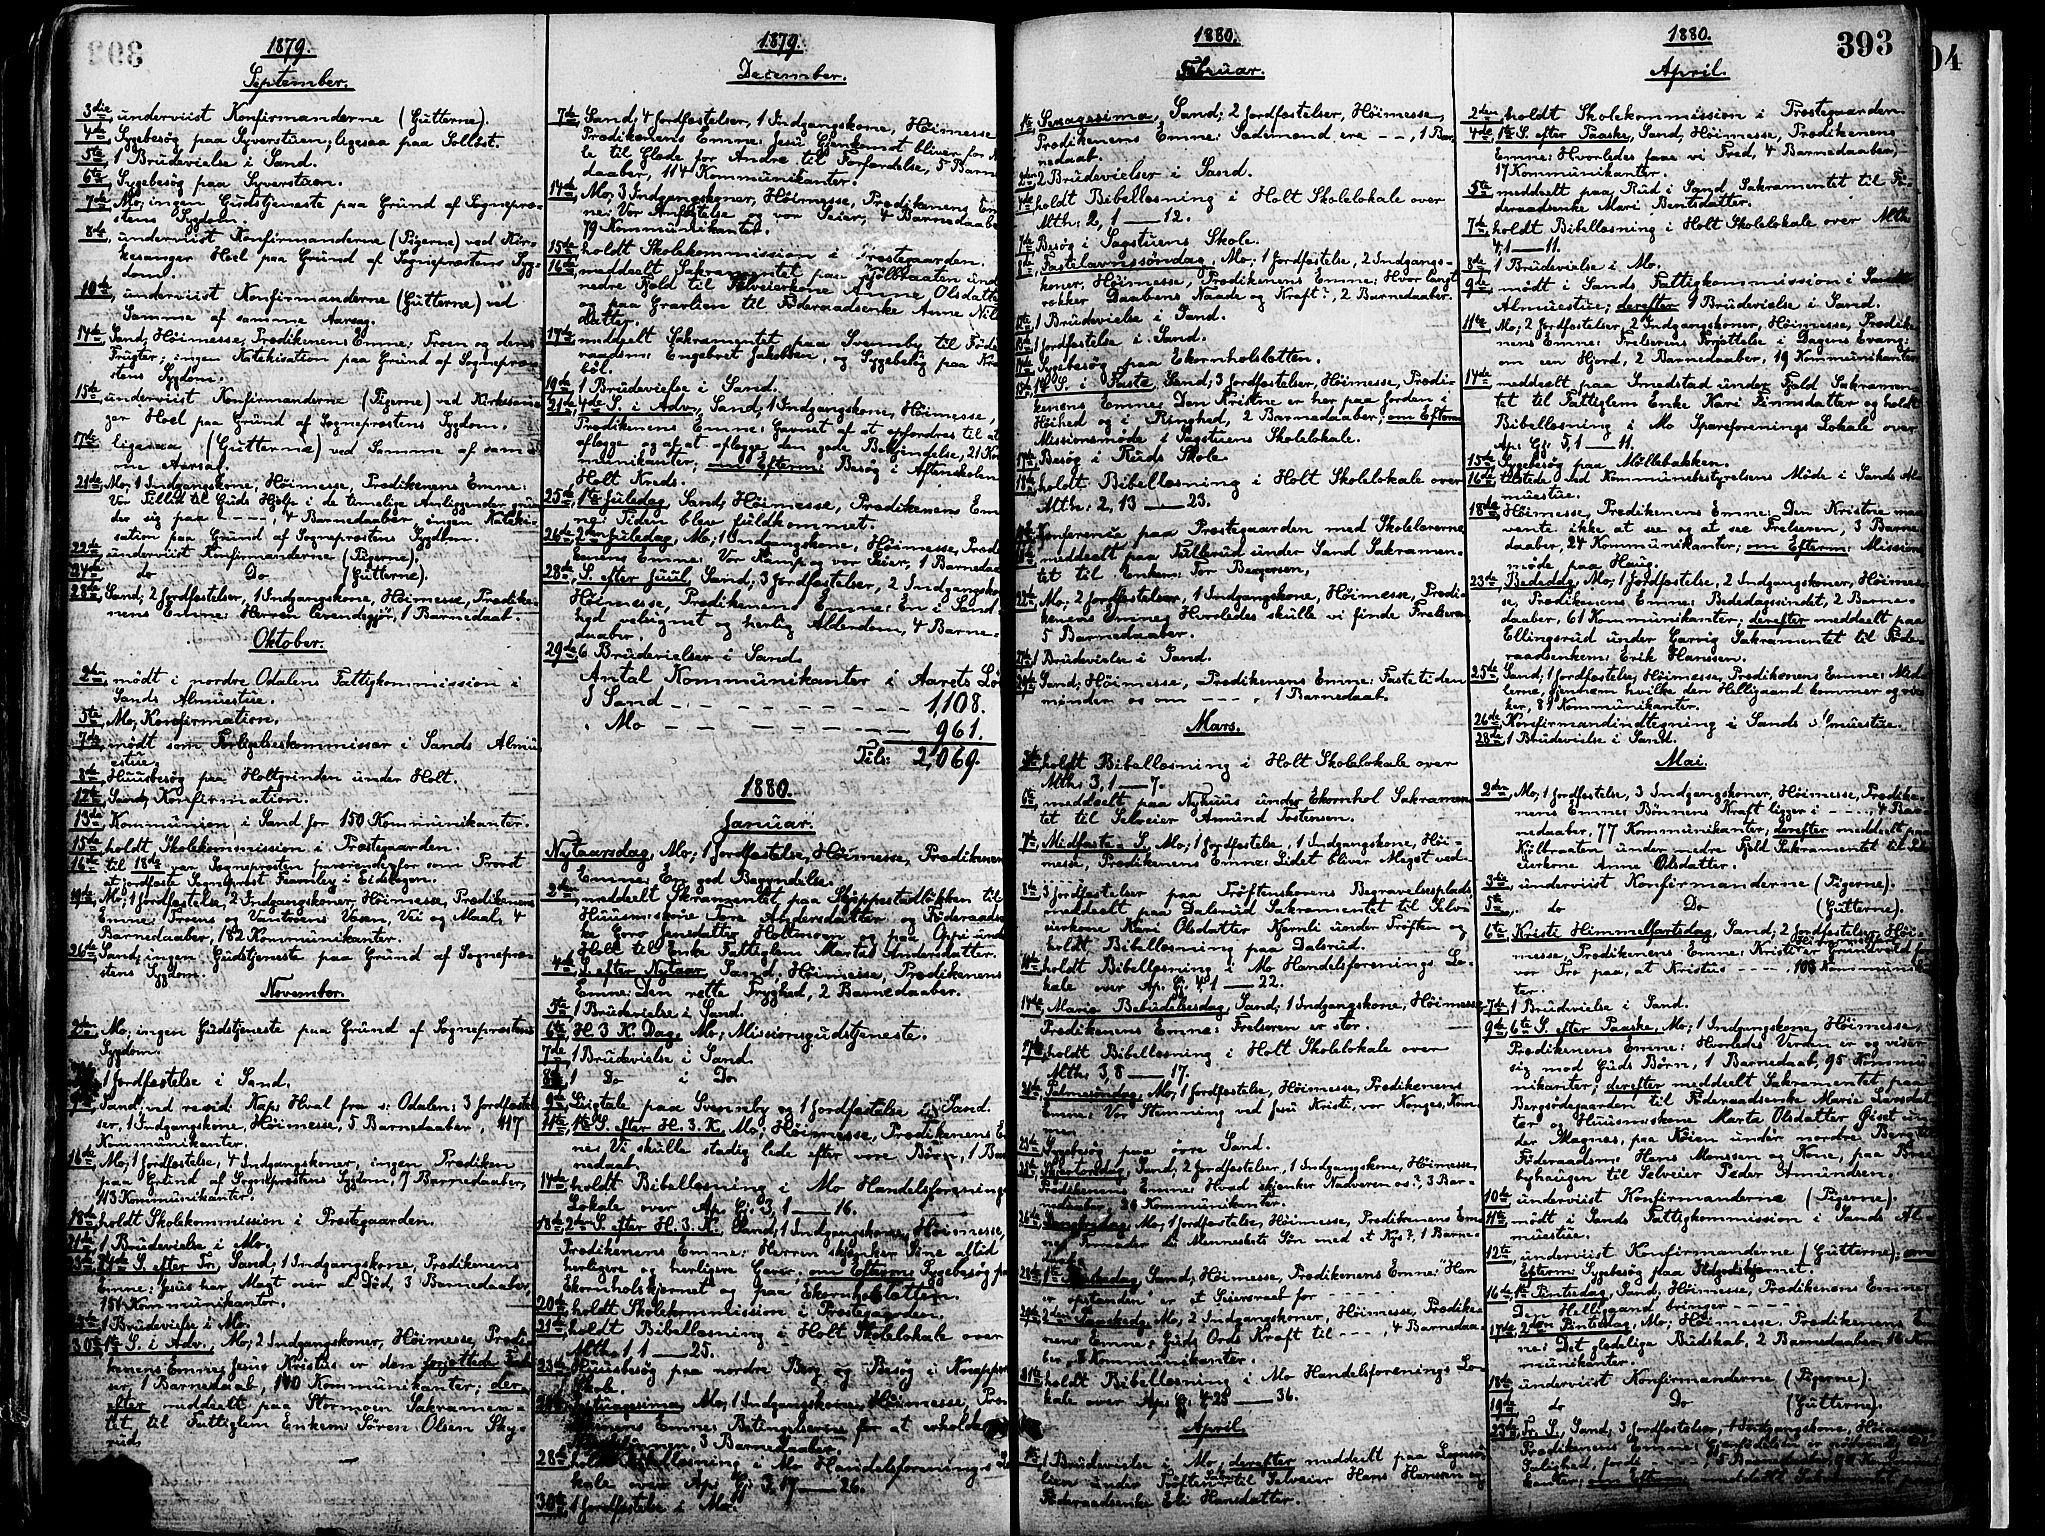 1879.
September.
3die, underviist Konfirmanderne (Gutterne).
4de, Sygebesøg paa Syverstuen; ligesaa paa Solløst.
5te, 1 Brudevielse i Sand.
6te, Sygebesøg paa Syverstuen.
7de, Mo, ingen Gudstjeneste paa Grund af Sognepræ-
stens Sygdom.
8de, underviist Konfirmanderne (Pigerne) ved Kir-
kesanger Hoel paa Grund af Sognepræstens Syg-
dom.
10de, underviist Konfirmanderne (Gutterne) ved
Samme af samme Aarsag.
14de, Sand, Høimesse, Prædikenens Emne: Troen og dens
Frugter; ingen Katekisation paa Grund af Sognepræ-
stens Sygdom.
15de, underviist Konfirmanderne (Pigerne) ved Kirkesan-
ger Hoel paa Grund af Sognepræstens Sygdom.
17de, ligesaa (Gutterne) ved Samme af sam-
me Aarsag.
21de, Mo, 1 Indgangskone, Høimesse, Prædikenens Emne:
Vor Tillid til Guds Hjelp i de timelige Anliggender grun-
der sig paa - - - -, 4 Barnedaaber, ingen Kateki-
sation paa Grund af Sognepræstens Sygdom.
22de, underviist Konfirmanderne (Pigerne).
24de, do Do (Gutterne).
28de, Sand, 2 Jordfæstelser, 1 Indgangskone, Høimesse, Prædike-
nens Emne: Herren levendegjør, 1 Barnedaab.
Oktober.
2den, mødt i nordre Odalens Fattigkommission i
Sands Almuestue.
5te, Mo, Konfirmation.
7de, mødt som Forligelseskommissær i Sands Almu-
estue.
8de, Huusbesøg paa Holtgrinden under Holt.
12te, Sand, Konfirmation.
13de, Kommunion i Sand for 150 Kommunikanter.
15de, holdt Skolekommission i Præstegaarden.
16de til 18de, var Sognepræsten fraværende for som Provst
at jordfæste Sognepræst Fearnley i Eidskogen.
19de, Mo, 1 Jordfæstelse, 2 Indgangskoner, Høimesse, Prædikenens
Emne: Troens og Vantroens Væsen, Vei og Maal, 4
Barnedaaber, 182 Kommunikanter.
26de, Sand, ingen Gudstjeneste paa Grund af Sognepræ-
stens Sygdom.
November.
2den, Mo, ingen Gudstjeneste paa Grund af Sognepræstens
Sygdom.
1 Jordfæstelse i Sand.
9de, Sand, ved resid. Kap. Hval fra s: Odalen: 3 Jordfæstel-
ser, 1 Indgangskone, Høimesse, 5 Barnedaaber, 117
Kommunikanter.
16de, Mo, 1 Jordfæstelse, 4 Indgangskoner, ingen Prædiken
paa Grund af Sognepræstens Sygdom, 7 Barnedaaber,
413 Kommunikanter.
18de, holdt Skolekommission i Præstegaarden.
21de, 1 Brudevielse i Mo.
23de, 24de S. efter Tr., Sand, 1 Indgangskone, Prædikenens
Emne: Jesus har Magt over al Død, 3 Barnedaaber,
151 Kommunikanter.
1 Brudevielse i Mo.
30te, 1te S. i Adv., Mo, 2 Indgangskoner, Høimesse, Prædi-
kenens Emne: Jesus Kristus er den forjættede Frel-
ser, 1 Barnedaab, 140 Kommunikanter; der-
efter meddeelt paa Stormoen Sakramen-
tet til Fattiglem Enkem: Søren Olsen Sky-
rud.
1879.
December.
7de, Sand, 4 Jordfæstelser, 1 Indgangskone, Høimesse
Prædikenens Emne: Jesu Gjenkomst bliver for No-
le til Glæde for Andre til Forfærdelse, 5 Barne
daaber, 114 Kommunikanter.
14de, Mo, 3 Indgangskoner, Høimesse, Prædikenens Em
ne: Vor Anfægtelse og vor Seier, 4 Barnedaaber
79 Kommunikanter.
15de, holdt Skolekommission i Præstegaarden.
16de, meddeelt Sakramentet paa Kjølbraaten under
nedre Fjeld til Selveierkone Anne Olsdatter
og paa Gravlien til Føderaadsenke Anne Nils
datter.
17de, meddeelt Sakramentet paa Svenneby til Føde
raadsm: Engebret Jakobsen, og Sygebesøg paa
bøl.
19de, 1 Brudevielse i Sand.
21de, 4de S. i Adv., Sand, 1 Indgangskone, Høimesse,
Prædikenens Emne: Gavnet af at opfordres til at
aflægge og af at aflægge den gode Bekjendelse, 21 Kom
munikanter; om Efterm: Besøg i Aftenskolen
Holt Kreds.
25de, 1te Juledag, Sand, Høimesse, Prædikenens Em
ne: Tiden blev fuldkommet.
26de, 2den Juledag, Mo, 1 Indgangskone, Høimesse, Prædi
kenens Emne: Vor Kamp og vor Seier, 1 Barnedaab
28de, S. efter Juul, Sand, 3 Jordfæstelser, 2 Indgangskoner
Høimesse, Prædikenens Emne: En i Sand-
hed velsignet og herlig Alderdom, 4 Barne-
daaber.
29de, 6 Brudevielser i Sand.
Antal Kommunikanter i Aarets Løb
I Sand - - - - - - - - 1,108.
" Mo - - - - - - - - 961.
Tils: 2,069.
1880.
Januar.
Nytaarsdag, Mo, 1 Jordfæstelse, Høimesse, Prædikenens
Emne: En god Begyndelse.
2den, meddeelt Sakramentet paa Skjeppestadløkken til
Huusmskone Tore Andersdatter og Føderaadsen
ke Goro Jensdatter Holtmoen og paa Opsi under
Holt til Enke Fattiglem Martad Andersdatter.
4de, S. efter Nytaar, Sand, Høimesse, Prædikenens
Emne: Den rette Tryghed, 2 Barnedaaber.
5te, 1 Brudevielse i Sand.
6te, H. 3 K. Dag, Mo, Missionsgudstjeneste.
7de, 1 Brudevielse i Sand.
8de, 1 Do i Do
9de, Ligtale paa Svenneby og 1 Jordfæstelse i Sand.
11te, 1te S. efter H. 3. K., Mo, Høimesse, Prædikenens Em
ne: Vi skulle stadig lede efter vore Børn, 1 Bar
nedaab.
14de, holdt Bibellæsning i Mo Handelsforenings
Lokale over Ap. Gj. 3,1 — 16.
18de, 2den S. efter H. 3. K., Sand, 1 Indgangskone, Høimesse,
Prædikenens Emne: Herren skjænker Sine altid
herligere og herligere Gaver; om Efterm: Sygebesøg paa
Ekornholskjernet og paa Ekornholslotten.
20de, holdt Skolekommission i Præstegaarden.
21de, holdt Bibellæsning i Holt Skolelokale over
Mth. 1,1 — 25.
23de, Huusbesøg paa nordre Berg og Besøg i Knapper
Skole.
Septuagesima, Mo, 1 Indgangskone, Høimesse, Præ-
dikenens Emne: Betingelserne for at erholde
3 Barnedaaber.
28de, holdt Bibellæsning i Mo Handelsforenings Lo
kale over Ap. Gj. 3,17 — 26.
30te, 1 Jordfæstelse i Mo.
1880.
Februar.
1te, Sexagesima, Sand; 2 Jordfæstelser, Høimesse,
Prædikenens Emne: Sædemænd ere - - -, 1 Bar-
nedaab.
2den, 2 Brudevielser i Sand.
4de, holdt Bibellæsning i Holt Skolelokale over
Mth. 2, 1 — 12.
7de, Besøg i Sagstuens Skole.
8de, Fastelavnssøndag, Mo, 1 Jordfæstelse, 2 Indgangs-
koner, Høimesse, Prædikenens Emne: Hvor langt
rækker Daabens Naade og Kraft?, 2 Barnedaaber.
1 Brudevielse i Sand.
13de, 1 Jordfæstelse i Sand.
Sygebesøg paa Ekornholslotten.
15de, 1te S. i Faste, Sand, 3 Jordfæstelser, Høimesse, Prædi-
kenens Emne: Den Kristne er her paa Jorden i
Høihed og i Ringhed, 2 Barnedaaber; om Efterm:
Missionsmøde i Sagstuens Skolelokale.
17de, Besøg i Ruds Skole.
18de, holdt Bibellæsning i Holt Skolelokale over
Mth. 2, 13 — 23.
Konferense paa Præstegaarden med Skolelærerne,
meddeelt paa Tullerud under Sand Sakramen-
tet til Enkem: Tor Bergersen.
22de, Mo, 2 Jordfæstelser, 1 Indgangskone, Høimesse, Prædi-
kenens Emne: Hvorledes skulle vi finde Frelseren,
5 Barnedaaber.
1 Brudevielse i Sand.
29de, Sand, Høimesse, Prædikenens Emne: Fastetiden
minder os om - - -, 1 Barnedaab.
Mars.
holdt Bibellæsning i Holt Skolelokale over
Mth. 3,1 — 7.
6te, meddeelt paa Nyhuus under Ekornhol Sakramen-
tet til Selveier Amund Tostensen.
7de, Midfaste-S., Mo, 1 Jordfæstelse, 1 Indgangskone, Høi-
messe, Prædikenens Emne: Lidet bliver Meget ved -
8de, 3 Jordfæstelser paa Trøftenskovens Begravelsesplads,
meddeelt paa Dalsrud Sakramentet til Selv-
eierkone Kari Olsdatter Kjernli under Trøften og
holdt Bibellæsning paa Dalsrud.
holdt Bibellæsning i Mo Handelsforenings Lo-
kale over Ap. Gj. 4,1 — 22.
14de, Mariæ Bebudelsesdag, Sand, 1 Indgangskone, Høimesse,
Prædikenens Emne: Frelseren er stor.
17de, holdt Bibellæsning i Holt Skolelokale over
Mth. 3,8 — 17.
21de, Palmesøndag, Mo, 1 Jordfæstelse, Høimesse, Prædikenens
Emne: Vor Stemning ved Jesu Kristi, vor Konges, Kom-
me.
Sygebesøg paa øvre Sand.
25de, Skjærtorsdag, Sand, 2 Jordfæstelser, 1 Indgangskone, Høimesse,
Prædikenens Emne: Hvad skjænker Nadveren os?, 3 Bar-
nedaaber, 28 Kommunikanter.
26de, Langfredag, Mo, 1 Jordfæstelse, Høimesse, Prædikenens Em-
ne: Forraader du Menneskets Søn med et Kys?, 1 Barne-
daab.
28de, 1te Paaskedag, Sand, Høimesse, Prædikenens Emne: "Han
er opstanden" er et Seiersraab for - - - -
29de, 2den Paaskedag, Mo, 2 Indgangskoner, Høimesse, Prædike-
nens Emne: Guds Ords Kraft til - - -, 4 Barnedaa-
ber, 8 Kommunikanter.
31te, holdt Bibellæsning i Mo Handelsforenings Lo-
kale over Ap. Gj. 4,23 — 36.
April.
1te, 1 Brudevielse i Mo, derefter meddeelt paa
lien under Trøften Sakr. til Selveier Hans Hansen og
Føderaadsenke Eli Hansdatter.
1880. 393
April.
2den, holdt Skolekommission i Præstegaarden.
4de, 1te S. efter Paaske, Sand, Høimesse, Prædikenens
Emne: Hvorledes faae vi Fred, 4 Barnedaaber,
17 Kommunikanter.
5te, meddeelt paa Rud i Sand Sakramentet til Fø-
deraadsenke Mari Berntsdatter.
7de, holdt Bibellæsning i Holt Skolelokale over Mth.
4,1 — 11.
8de, 1 Brudevielse i Mo.
9de, mødt i Sands Fattigkommission i Sands
Almuestue; derefter 1 Brudevielse i Sand.
11te, Mo, 2 Jordfæstelser, 2 Indgangskoner, Høimesse, Prædike-
nens Emne: Frelserens Forjættelse i Dagens Evang:
om een Hjord, 2 Barnedaaber, 19 Kommunikanter.
14de, meddeelt paa Smedstad under Fjeld Sakramen-
tet til Fattiglem Enke Kari Finnsdatter og holdt
Bibellæsning i Mo Spareforenings Lokale over
Ap. Gj. 5,1 — 11.
15de, Sygebesøg paa Møllebakken.
16de, tilstede ved Kommunebestyrelsens Møde i Sands Al-
muestue.
18de, Høimesse, Prædikenens Emne: Den Kristne maa
vente ikke at see og at see Frelseren, 3 Barne-
daaber, 24 Kommunikanter; om Efterm: Missions-
møde paa Haug.
23de, Bededag, Mo, 1 Jordfæstelse, 2 Indgangskoner, Høimes-
se, Prædikenens Emne: Bededagssindet, 2 Barne-
daaber, 61 Kommunikanter; derefter meddeelt paa
Ellingsrud under Garvig Sakramentet til Føde-
raadsenkem: Erik Hanssen.
25de, Sand, 1 Jordfæstelse, Høimesse, Prædikenens Emne: Mid-
lerne, gjennem hvilke den Helligaand kommer og vir-
ker, 81 Kommunikanter.
26de, Konfirmandindtegning i Sands Almuestue.
28de, 1 Brudevielse i Sand.
Mai.
2den, Mo, 1 Jordfæstelse, 3 Indgangskoner, Høimesse, Prædike-
nens Emne: Bønnens Kraft ligger i - - - -, 4 Bar-
nedaaber, 77 Kommunikanter, derefter meddeelt paa
Kjølbraaten under nedre Fjeld Sakramentet til Selv-
eierkone Anne Olsdatter.
3die, underviist Konfirmanderne (Pigerne).
5te, do Do (Gutterne).
6te, Kristi Himmelfartsdag, Sand, 2 Jordfæstelser, Høi-
messe, Prædikenens Emne: Kristi Himmelfart er Grundvold for
vor Tro paa, at Kristus - - - -, 108 Kommunikan-
ter.
7de, 1 Brudevielse i Sand.
9de, 6te S. efter Paaske, Mo, 1 Indgangskone, Høimesse,
Prædikenens Emne: Hvorledes Verden er og viser
sig mod Guds Børn, 1 Barnedaab, 95 Kommu-
nikanter; derefter meddeelt Sakramentet paa
Bergsødegaarden til Føderaadsenke Marie Larsdat-
ter og Huusmskone Marta Olsdatter Øiset un-
der Magnæs, paa Køien under nordre Berg til
Føderaadsm: Hans Monssen og Kone, paa Brei-
byhaugen til Selveier Peder Amundsen.
10de, underviist Konfirmanderne (Pigerne).
11te, mødt i Sands Fattigkommission i Sands Al-
muestue.
12te, underviist Konfirmanderne (Gutterne); om
Efterm: Sygebesøg paa
16de, 1te Pintsedag, Sand, Høimesse, Prædikenens Emne:
Den Helligaand bringer - - - -
17de, 2den Pintsedag, Mo, Høimesse, Prædikenens Em-
ne: Det glædelige Budskab, 2 Barnedaaber, 16 Kom-
munikanter.
18de, underviist Konfirmanderne (Pigerne).
19de, do Do (Gutterne).
23de, Tr. S., Sand, 3 Jordfæstelser, 1 Indgangskone, Høimesse,
Prædikenens Emne: Gjenfødelsen er nødvendig til
Salighed, fordi - - -, 5 Barnedaaber, 90 Kommuni-
kanter; om Efterm: meddeelt Sakramentet